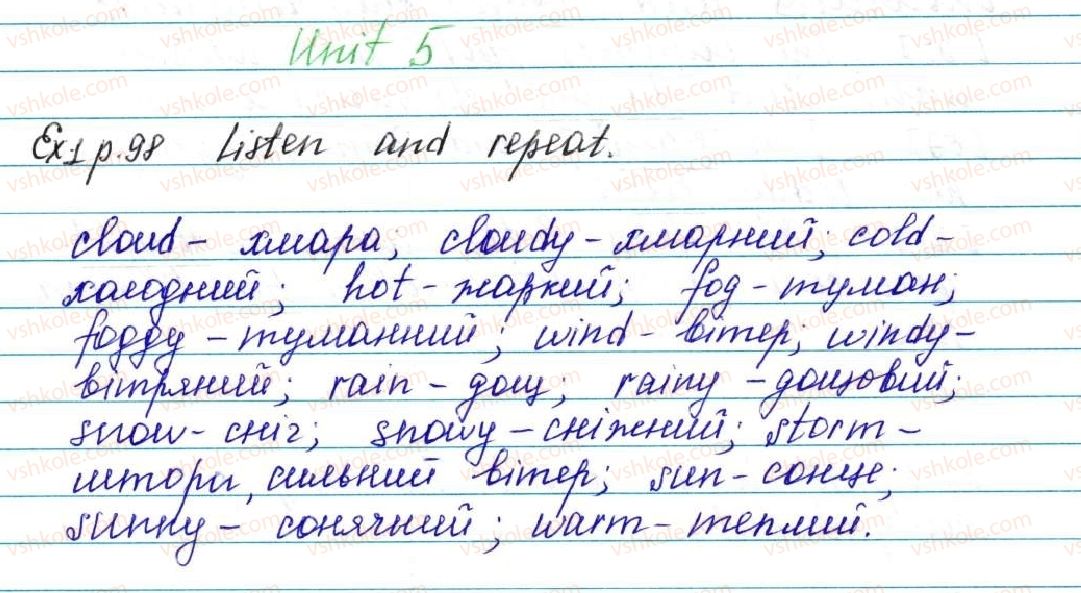 Unit 5
Ex.1 p.98 Listen and repeat.
cloud - хмара; cloudy - хмарний; cold -
холодний; hot - жаркий; fog - туман;
foggy - туманний; wind - вітер; windy -
вітряний; rain - дощ; rainy - дощовий;
snow - сніг; snowy - сніжний; storm -
шторм, сильний вітер; sun - сонце;
sunny - сонячний; warm - теплий.